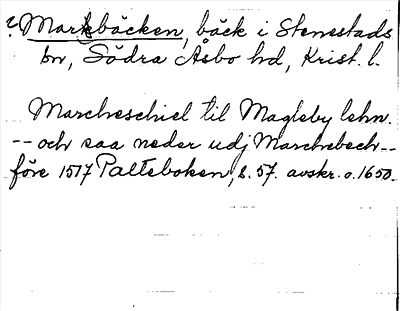 ? Markbäcken, bäck i Stenestads
sn, Södra Åsbo hd, Krist. l.
Marcheschiel til Magleby lehn.
-- och saa neder udj Marchebech --
före 1517 Palteboken, s. 57. avskr. o. 1650.